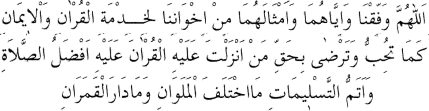 اَللّٰهُمَّ وَفِّقْنَا وَاِيَّاهُمَا وَاَمْثَالَهُمَا مِنْ اِخْوَانِنَا لِخِدْمَةِ الْقُرْاٰنِ وَالْاِيمَانِ
كَمَا تُحِبُّ وَتَرْضٰى بِحَقِّ مَنْ اَنْزَلْتَ عَلَيْهِ الْقُرْاٰنَ عَلَيْهِ اَفْضَلُ الصَّلَاةِ
وَاَتَمُّ التَّسْلِيمَاتِ مَااخْتَلَفَ الْمَلَوَانِ وَمَادَارَ الْقَمَرَانِ